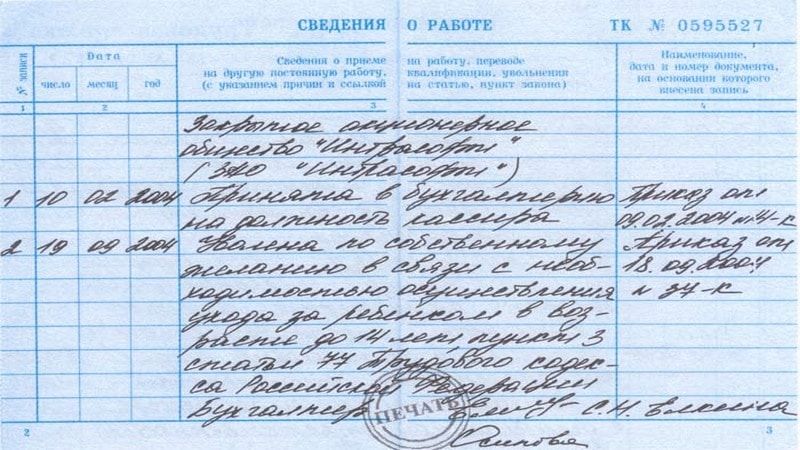 СВЕДЕНИЯ О РАБОТЕ ТК № 0595527
№ записи
Дата
число месяц год
Сведения о приеме на работу, переводе
на другую постоянную работу, квалификации, увольнении
(с указанием причин и ссылкой на статью, пункт закона)
Наименование,
дата и номер документа,
на основании которого
внесена запись
1 2 3 4
Закрытое акционерное
общество "Интрасофт"
(ЗАО "Интрасофт")
1 10 02 2004 Принята в бухгалтерию Приказ от
на должность кассира 09.02.2004 № 14-к
2 19 09 2004 Уволена по собственному Приказ от
желанию в связи с необ- 18.09.2004
ходимостью осуществления № 37-к
ухода за ребенком в воз-
расте до 14 лет, пункт 3
статьи 77 Трудового кодек-
са Российской Федерации
Бухгалтер С.Н. Елкина
ПЕЧАТЬ
Осипова
2 3